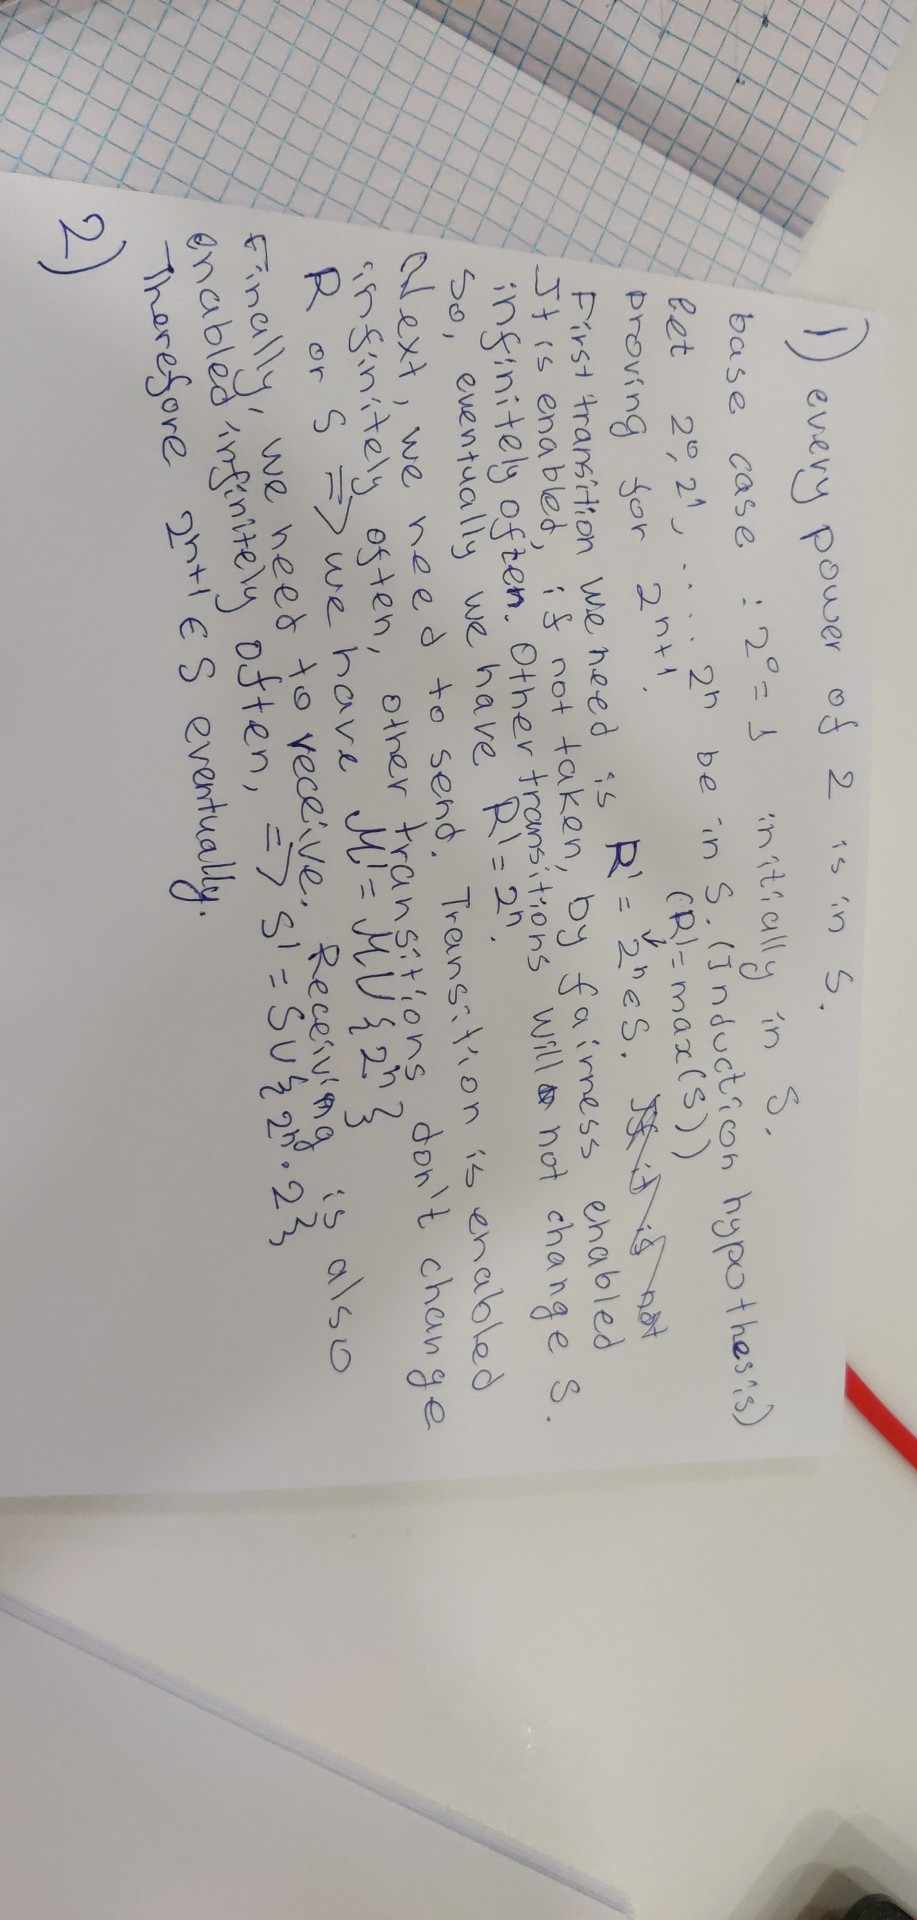 1) every power of 2 is in S.
base case : 2⁰ = 1 initially in S.
let 2⁰, 2¹, ... 2ⁿ be in S. (Induction hypothesis)
proving for 2ⁿ⁺¹. (R' = max(S))
First transition we need is R' = 2ⁿ ∈ S. If it is not
It is enabled, if not taken, by fairness enabled
infinitely often. Other transitions will not change S.
So, eventually we have R' = 2ⁿ.
Next, we need to send. Transition is enabled
infinitely often, other transitions don't change
R or S => we have M' = M ∪ {2ⁿ}
Finally, we need to receive. Receiving is also
enabled infinitely often, => S' = S ∪ {2ⁿ · 2}
Therefore 2ⁿ⁺¹ ∈ S eventually.
2)